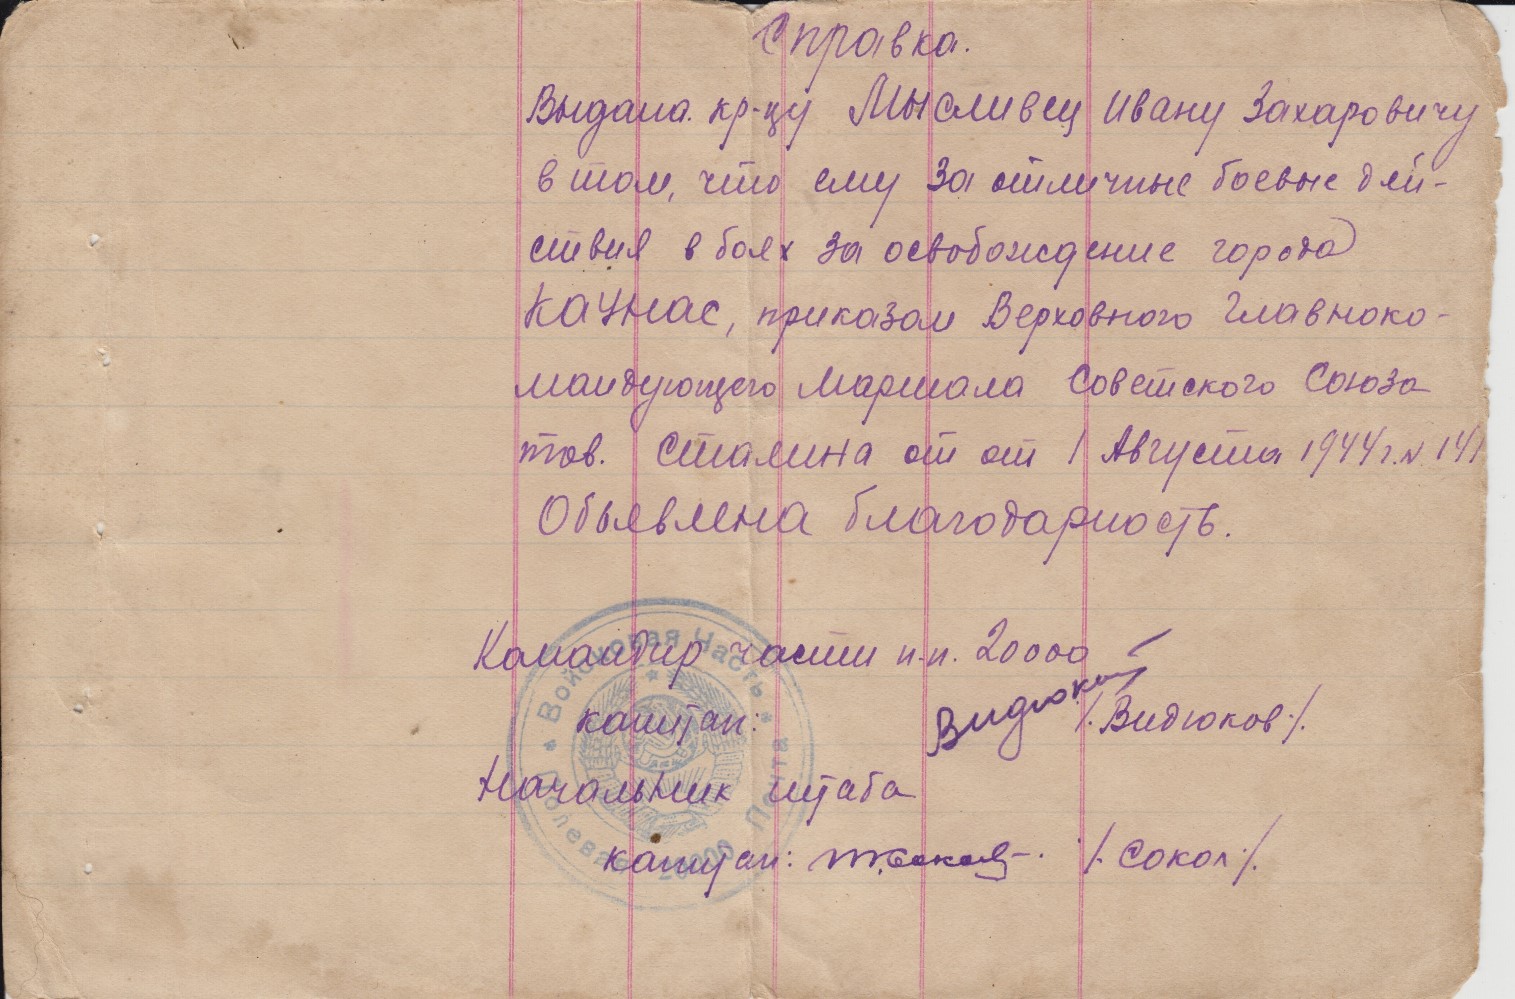 Справка.
Выдана кр-цу Мысливец Ивану Захаровичу
в том, что ему за отличные боевые дей-
ствия в боях за освобождение города
Каунас, приказом Верховного Главноко-
мандующего Маршала Советского Союза
тов. Сталина от от 1 Августа 1944 г. N 141
Обьявлена благодарность.
Командир части п.п. 20000
капитан: Видюков /. Видюков ./.
Начальник штаба
капитан: /. Сокол ./.
Войсковая Часть * Полевая Почта 20000 *